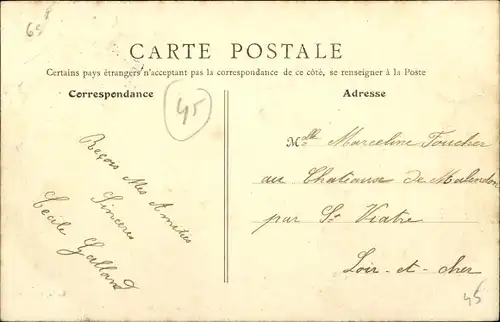 65
CARTE POSTALE
Certains pays étrangers n'acceptant pas la correspondance de ce côté, se renseigner à la Poste
Correspondance
45
Adresse
Reçois Mes Amitiés
Sincères
Cecile Galland
Mlle Marceline Foucher
au Chateaux de
par St Viatre
Loir-et-cher
45